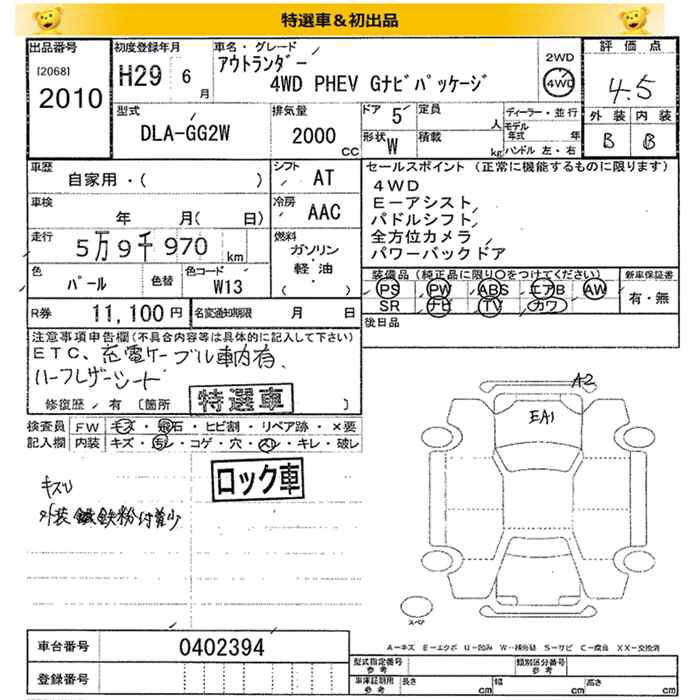 特選車＆初出品
出品番号 初度登録年月 車名・グレード 2WD 評価点
[2068] H29 6月 アウトランダー 4WD 4.5
2010 4WD PHEV Gナビパッケージ
型式 排気量 ドア 5 定員 人 ディーラー・並行 外装 内装
DLA-GG2W 2000 CC 形状 W 積載 kg モデル年式 年 B B
ハンドル 左・右
車歴 シフト セールスポイント (正常に機能するものに限ります)
自家用・( ) AT 4WD
車検 冷房 E-アシスト
年 月( 日) AAC パドルシフト
走行 燃料 全方位カメラ
5万9千970km ガソリン・軽油・( ) パワーバックドア
色 色替 色コード 装備品(純正品に限り○をつけてください) 新車保証書
パール W13 PS PW ABS エアB AW 有・無
SR ナビ TV カワ
R券 11,100円 名変通知期限 月 日 後日品
注意事項申告欄(不具合内容等は具体的に記入して下さい)
ETC、充電ケーブル車内有
ハーフレザーシート
修復歴 有 [箇所 特選車 ]
検査員 FW キズ・飛石・ヒビ割・リペア跡・×要
記入欄 内装 キズ・汚レ・コゲ・穴・スレ・キレ・破レ
ロック車
キズU
外装鐵鉄粉付着少
A2
EA1
スペア
A-キズ E-エクボ U-凹み W-補修跡 S-サビ C-腐食 XX-交換済
車台番号 0402394
登録番号
型式指定番号 参考 類別区分番号 参考
車庫証明用 参考 長さ cm 幅 cm 高さ cm